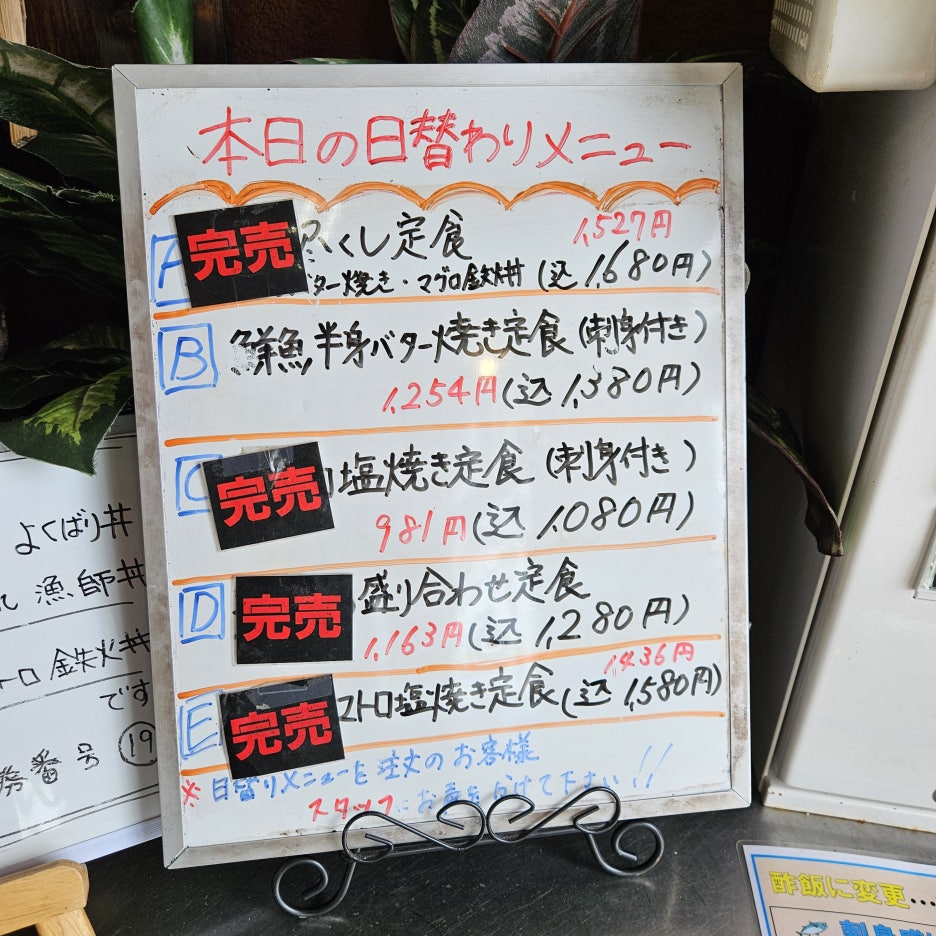 本日の日替わりメニュー
A 完売 くし定食 1,527円
ター焼き・マグロ鉄火丼 (込 1,680円)
B 鮮魚半身バター焼き定食(刺身付き)
1,254円(込 1,380円)
C 完売 塩焼き定食(刺身付き)
981円(込 1,080円)
D 完売 盛り合わせ定食
1,163円(込 1,280円)
1,436円
E 完売 トロ塩焼き定食(込 1,580円)
※日替りメニューを注文のお客様
スタッフにお声を掛けて下さい!!
よくばり丼
漁師丼
トロ鉄火丼
です
番号 19
酢飯に変更...
刺身盛